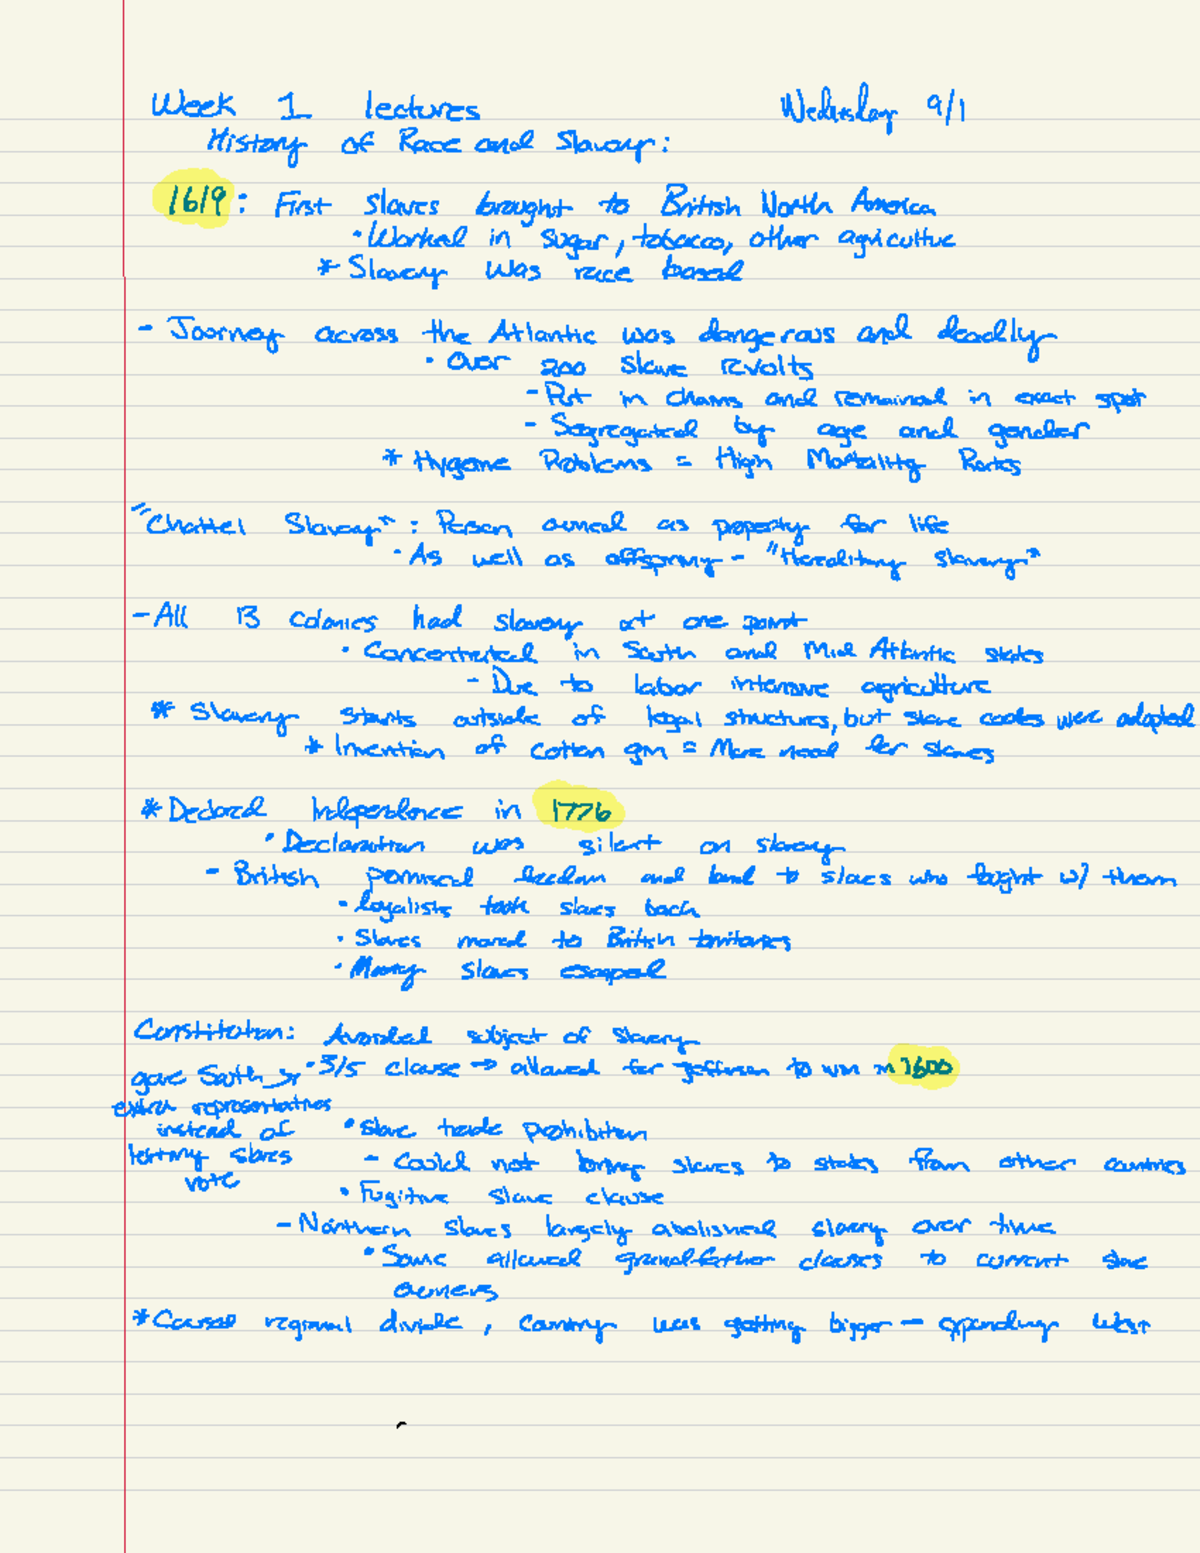 Week 1 lectures Wednesday 9/1
History of Race and Slavery:
1619: First slaves brought to British North America
• Worked in sugar, tobacco, other agriculture
* Slavery was race based
- Journey across the Atlantic was dangerous and deadly
• Over 200 slave revolts
- Put in chains and remained in exact spot
- Segregated by age and gender
* Hygene Problems = High Mortality Rates
"Chattel Slavery": Person owned as property for life
• As well as offspring - "Hereditary slavery"
- All 13 colonies had slavery at one point
• Concentrated in South and Mid Atlantic states
- Due to labor intensive agriculture
* Slavery starts outside of legal structures, but slave codes were adopted
* Invention of cotton gin = More need for slaves
* Declared Independence in 1776
• Declaration was silent on slavery
- British promised freedom and land to slaves who fought w/ them
• Loyalists took slaves back
• Slaves moved to British territories
• Many slaves escaped
Constitution: Avoided subject of slavery
• 3/5 clause → allowed for Jefferson to win in
gave South
extra representatives
instead of
letting slaves
vote
• Slave trade prohibition
- Could not bring slaves to states from other countries
• Fugitive slave clause
- Northern slaves largely abolished slavery over time
• Some allowed grandfather clauses to current slave
owners
* Caused regional divide, country was getting bigger - expanding West